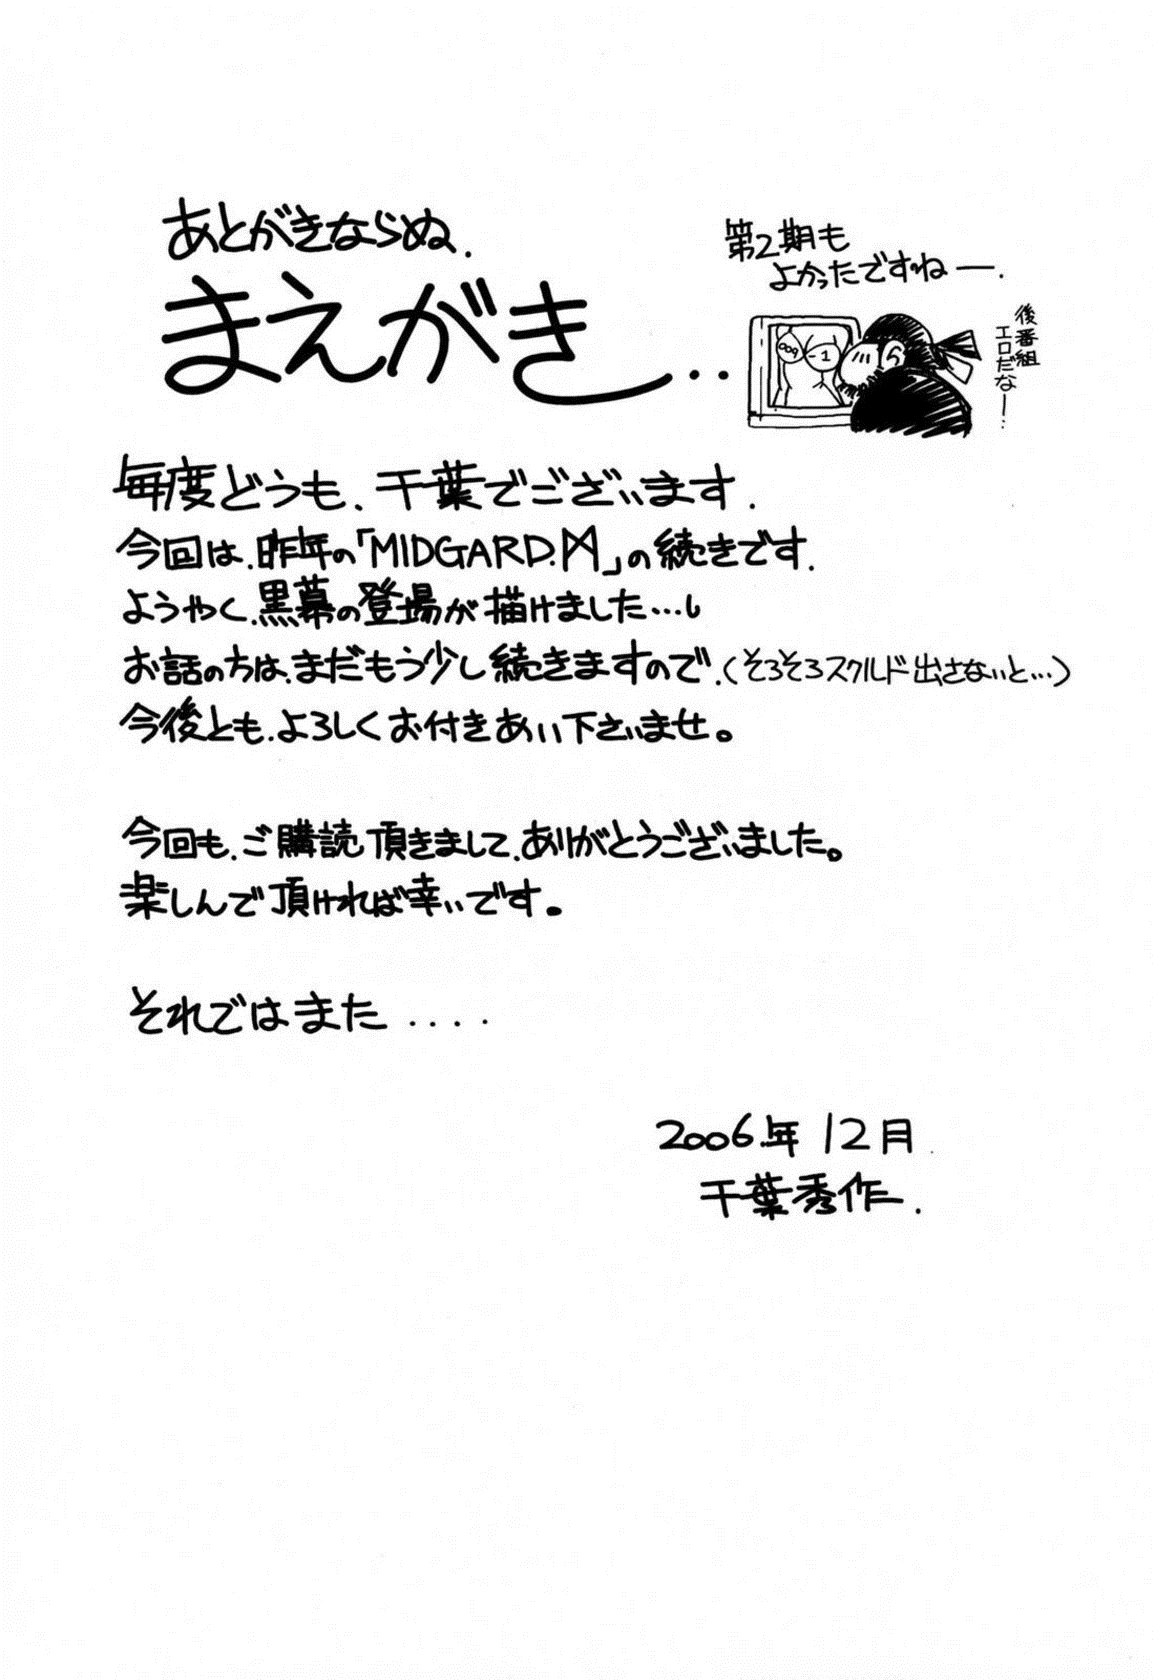 あとがきならぬ、
まえがき‥
第2期も
よかったですねー.
後番組
エロだなー‥
009
-1
毎度どうも、千葉でございます.
今回は、昨年の「MIDGARD.ᛗ」の続きです.
ようやく、黒幕の登場が描けました…。
お話の方は、まだもう少し続きますので、(そろそろスクルド出さないと…)
今後とも、よろしくお付きあい下さいませ。
今回も、ご購読頂きまして、ありがとうございました。
楽しんで頂ければ幸いです。
それではまた ....
2006年 12月
千葉秀作.